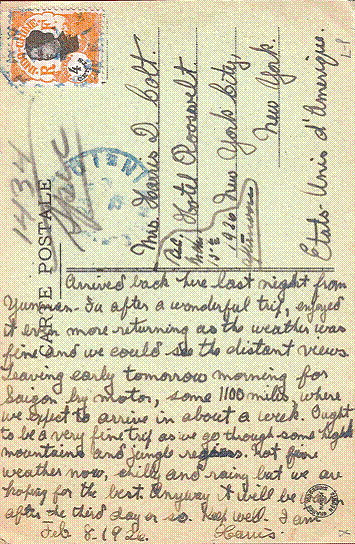 CARTE POSTALE
1434
Mrs. Harris D Colt.
Hotel Roosevelt
New York City
New York.
Etats-Unis d'Amerique.
Arrived back here last night from
Yunnan-Fu after a wonderful trip, enjoyed
it even more returning as the weather was
fine and we could see the distant views.
Leaving early tomorrow morning for
Saigon by motor, some 1100 miles, where
we expect to arrive in about a week. Ought
to be a very fine trip as we go through some high
mountains and jungle regions. Not fine
weather now, chilly and rainy but we are
hoping for the best. Anyway it will be
after the third day or so. Keep well - I am
Harris.
Feb 8. 1926.